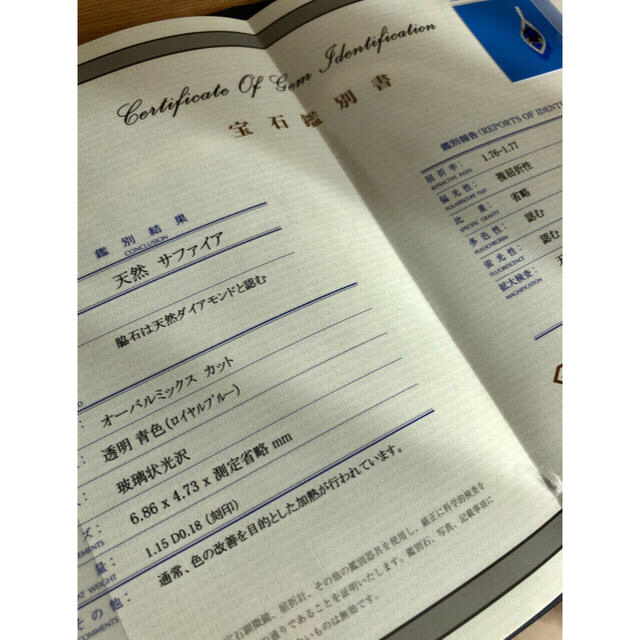 Certificate Of Gem Identification
宝石鑑別書
鑑別結果
CONCLUSION
天然 サファイア
脇石は天然ダイアモンドと認む
オーバルミックス カット
透明 青色(ロイヤルブルー)
玻璃状光沢
ズ: 6.86 x 4.73 x 測定省略 mm
量: 1.15 D0.18 (刻印)
WEIGHT
その他: 通常、色の改善を目的とした加熱が行われています。
COMMENTS
宝石顕微鏡、屈折計、その他の鑑別器具を使用し、厳正に科学的検査を
の通りであることを証明いたします。鑑別石、写真、記載事項に
ないものは無効です。
鑑別報告(REPORTS OF IDENTI
屈折率: 1.76-1.77
REFRACTIVE INDEX
偏光性: 複屈折性
POLARISCOPE TEST
比重: 省略
SPECIFIC GRAVITY
多色性: 認む
PLEOCHROISM
蛍光性: 認む
FLUORESCENCE
拡大検査:
MAGNIFICATION